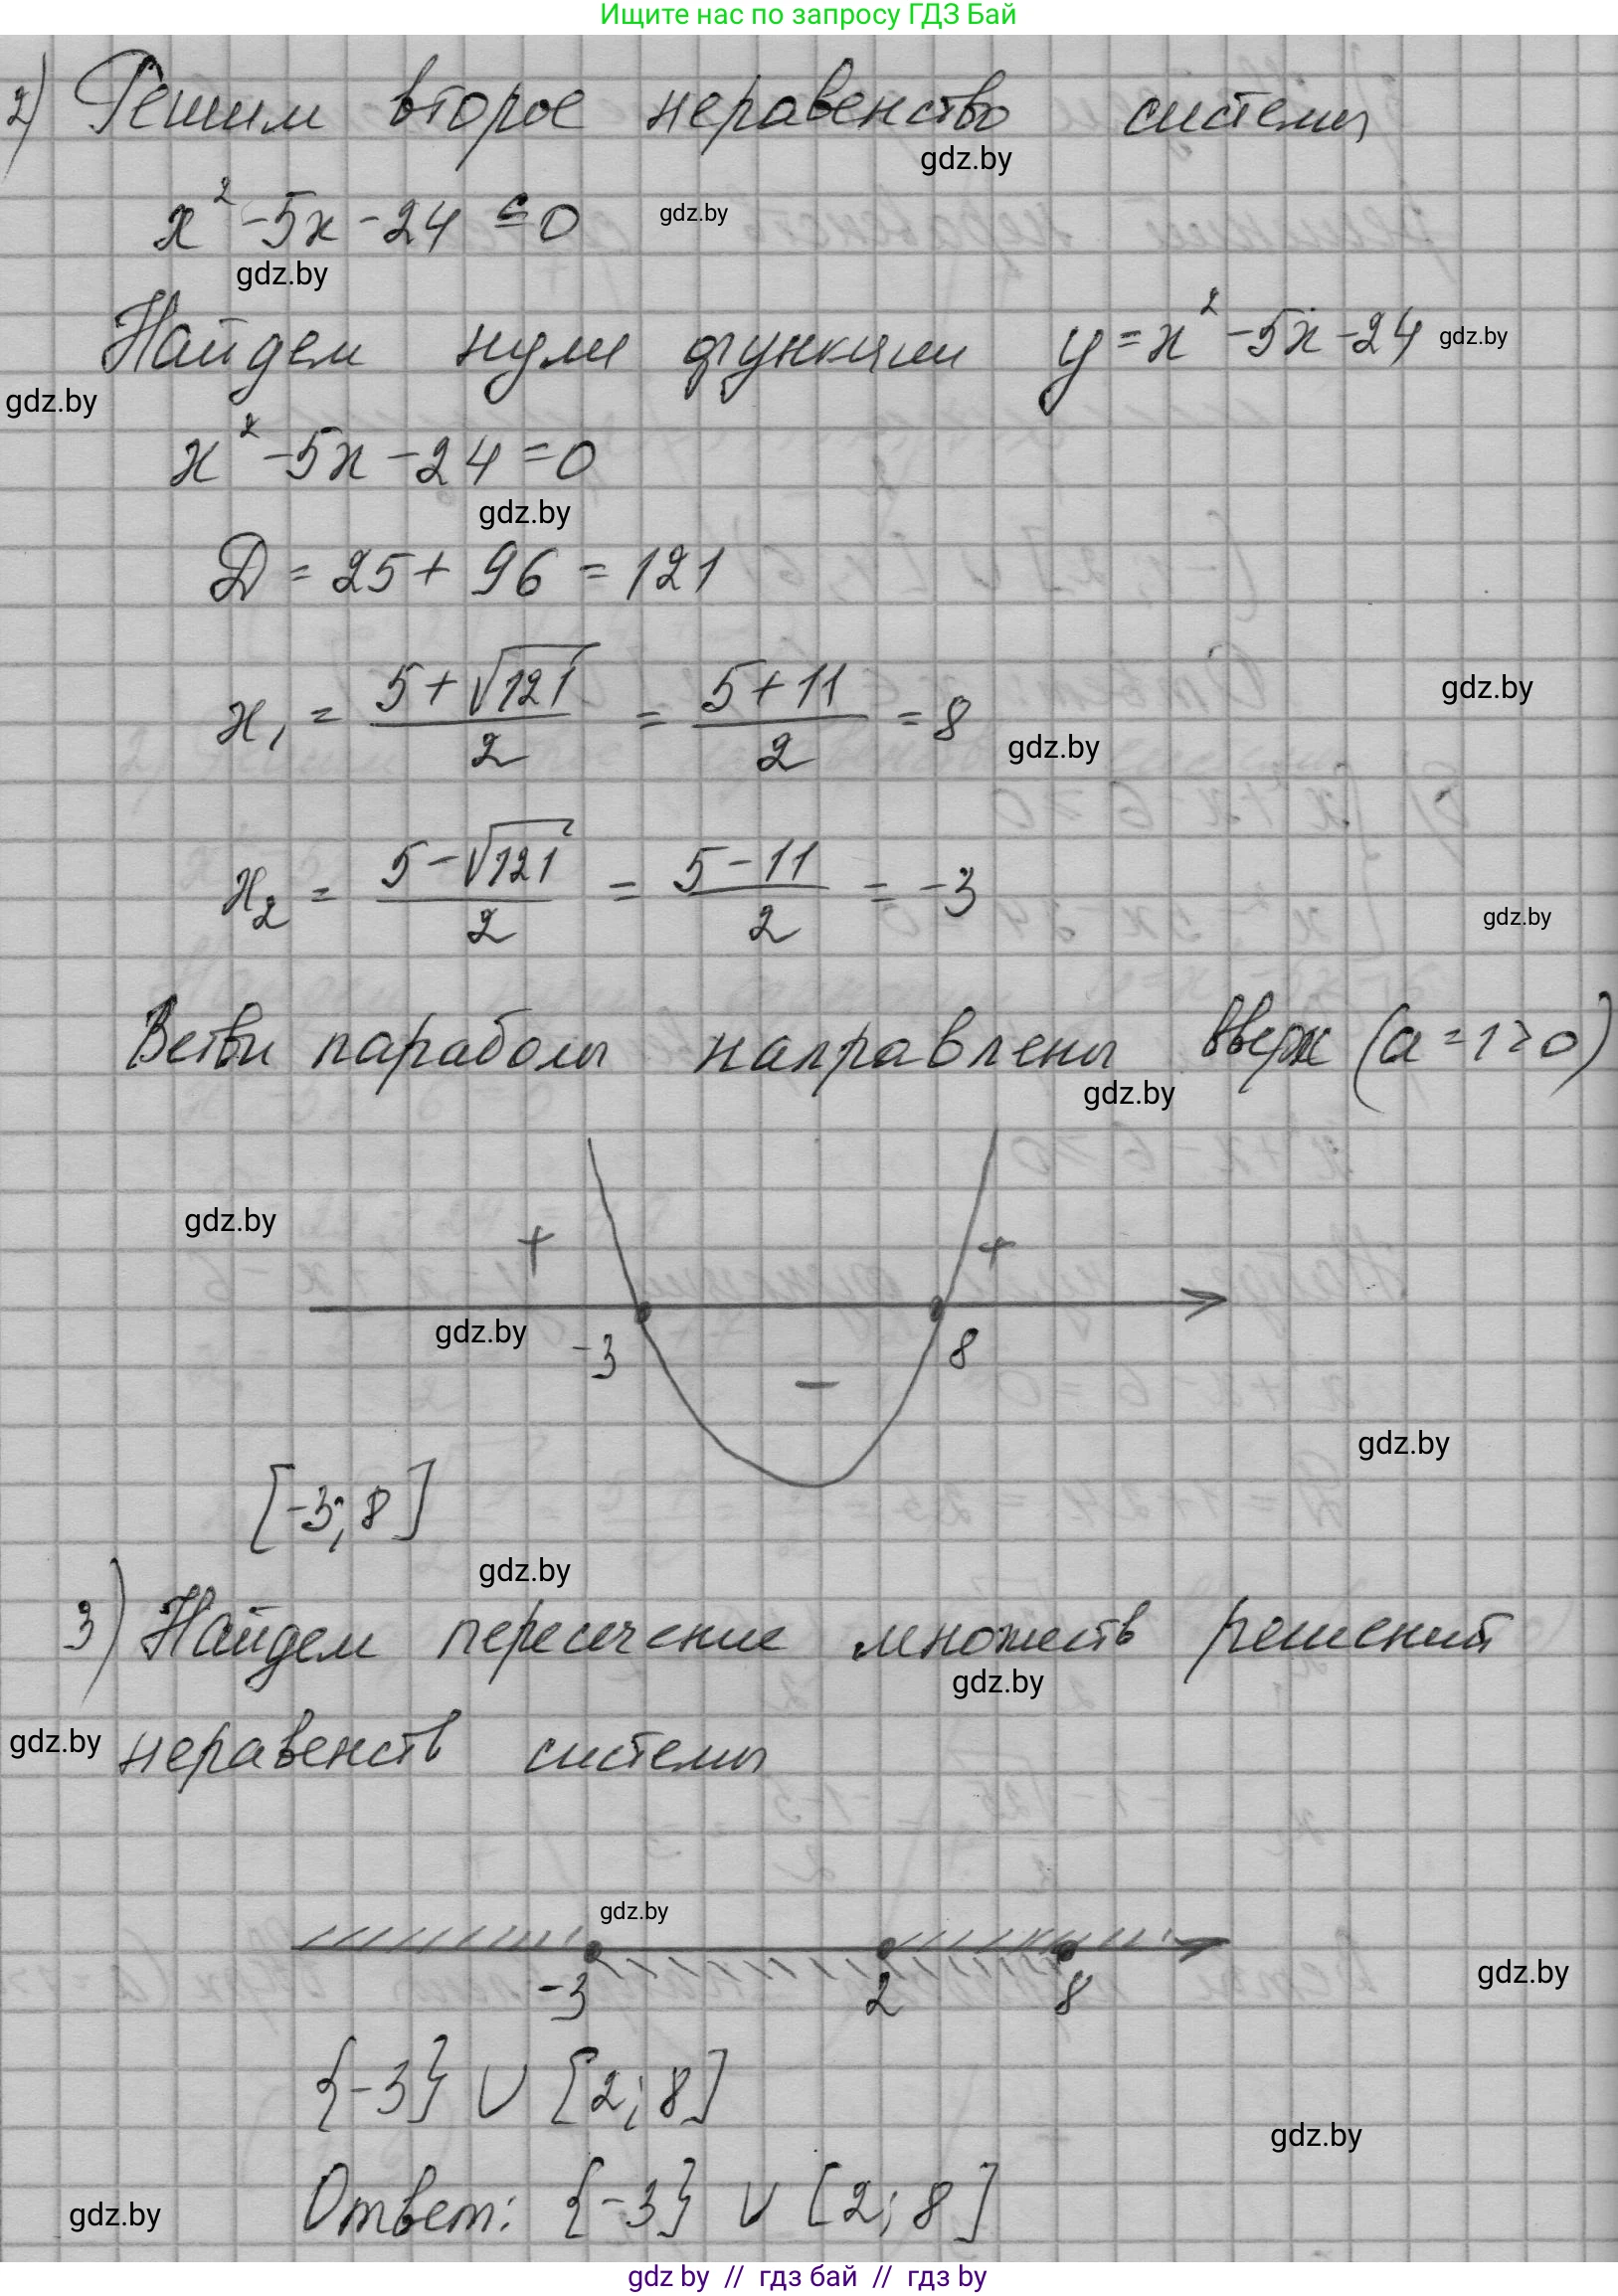 Ищите нас по запросу ГДЗ Бай
2) Решим второе неравенство системы
gdz.by
x² -5x -24 ≤ 0 gdz.by
gdz.by
Найдем нули функции y = x² -5x -24 gdz.by
gdz.by
x² -5x -24 = 0
gdz.by
D = 25 + 96 = 121
x₁ = (5 + √121)/2 = (5 + 11)/2 = 8
gdz.by
gdz.by
x₂ = (5 - √121)/2 = (5 - 11)/2 = -3
gdz.by
Ветви параболы направлены вверх (a = 1 > 0)
gdz.by
gdz.by
+ +
gdz.by
-3 8
-
gdz.by
[-3; 8]
gdz.by
3) Найдем пересечение множеств решений
gdz.by
gdz.by
неравенств системы
gdz.by
-3 2 8
gdz.by
{-3} ∪ [2; 8]
gdz.by
Ответ: {-3} ∪ [2; 8]
gdz.by
gdz by // гдз бай // гдз by